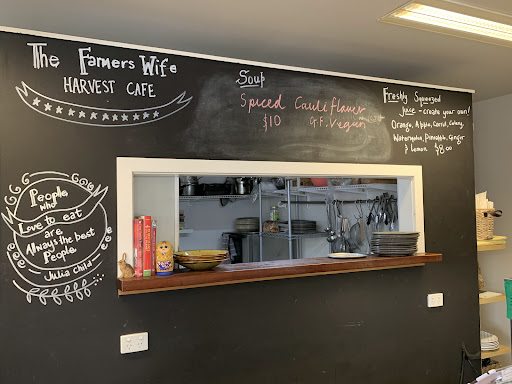 The Famers Wife
HARVEST CAFE
People
who
Love to eat
are
Always the best
People
Julia Child
Soup
Spiced Cauliflower
$10 G.F. Vegan
Freshly Squeezed
juice - create your own!
Orange, Apple, Carrot, Celery,
Watermelon, Pineapple, Ginger
& lemon $8.00